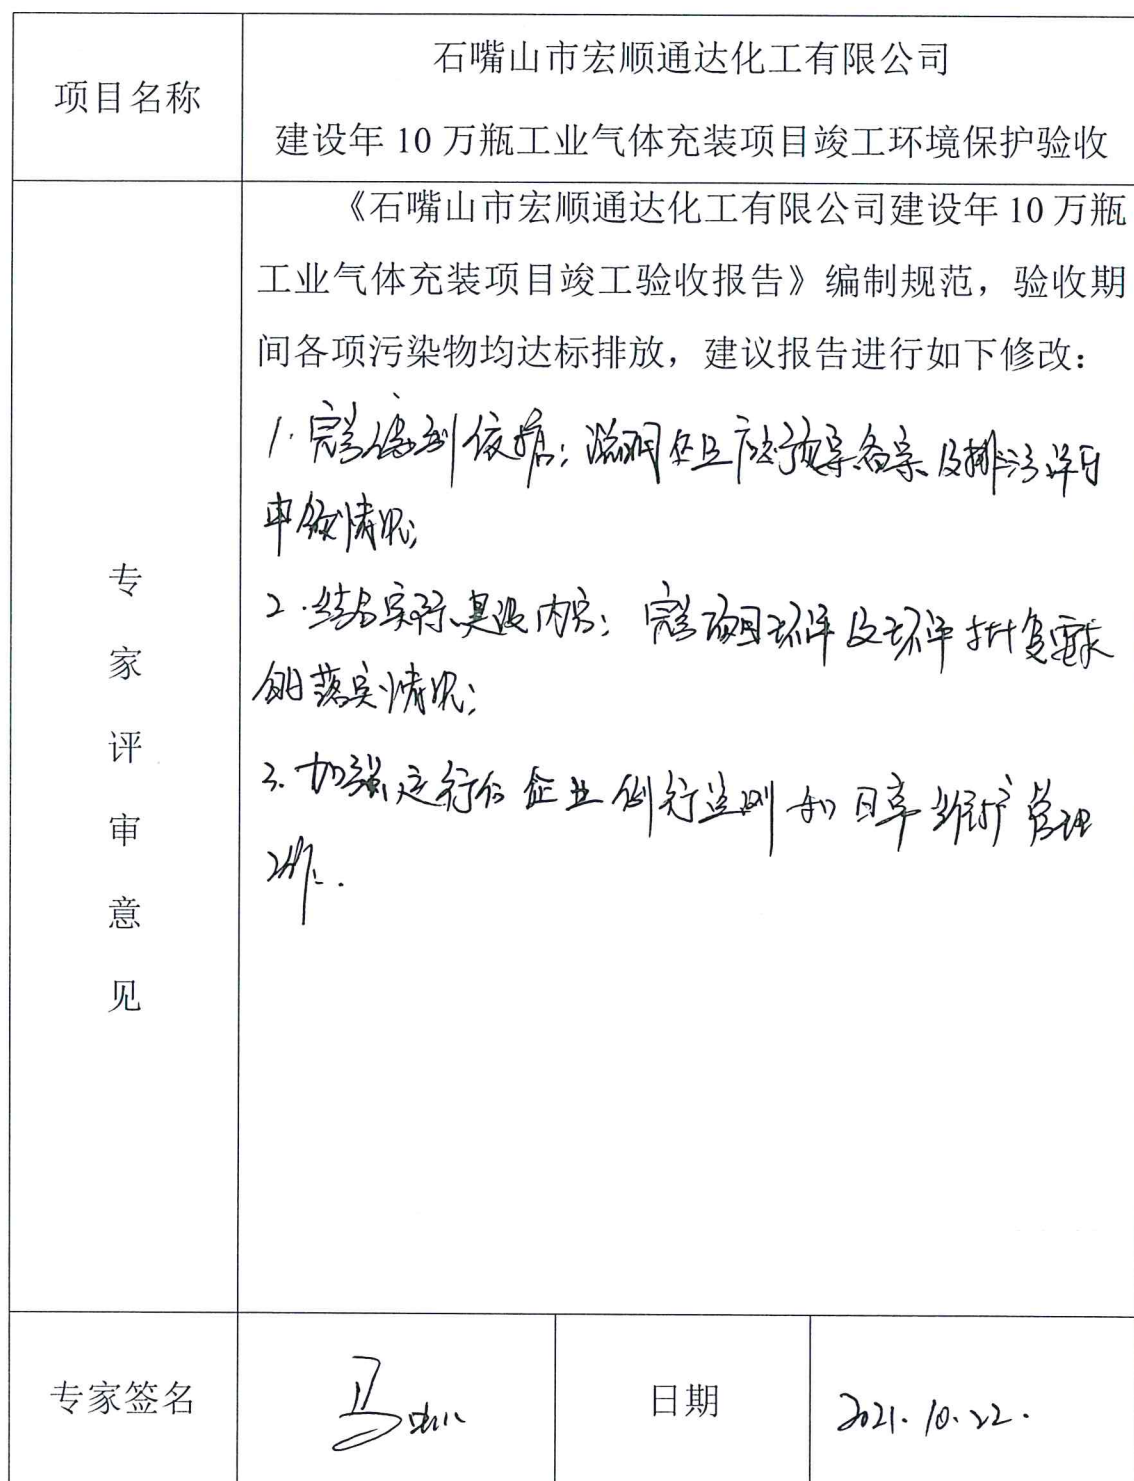 项目名称
石嘴山市宏顺通达化工有限公司
建设年 10 万瓶工业气体充装项目竣工环境保护验收
专家评审意见
《石嘴山市宏顺通达化工有限公司建设年 10 万瓶
工业气体充装项目竣工验收报告》编制规范，验收期
间各项污染物均达标排放，建议报告进行如下修改：
1. 完善编制依据；说明企业应急预案备案及排污许可
申领情况；
2. 结合实际建设内容；完善项目环评及环评批复要求
的落实情况；
3. 加强运行后企业例行监测和日常维护管理
工作.
专家签名
马
日期
2021.10.22.